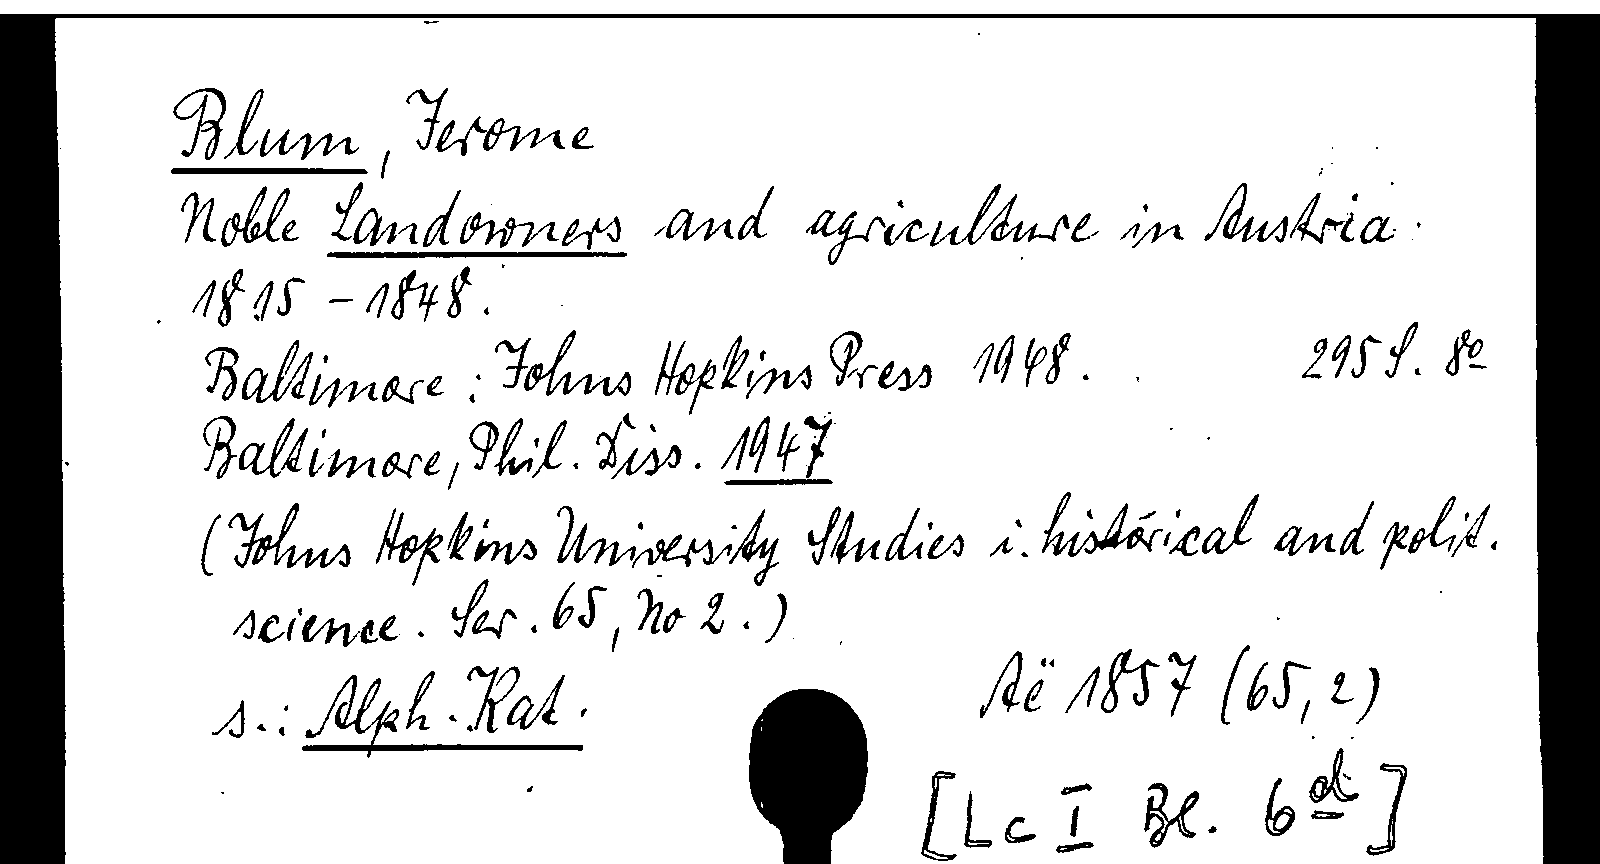 Blum, Jerome
Noble Landowners and agriculture in Austria
1815 - 1848.
Baltimore: Johns Hopkins Press 1948. 295 S. 8º
Baltimore, Phil. Diss. 1947
(Johns Hopkins University Studies i. historical and polit.
science. Ser. 65, No 2.)
s.: Alph. Kat.
Aë 1857 (65,2)
[Lc I Bl. 6d]